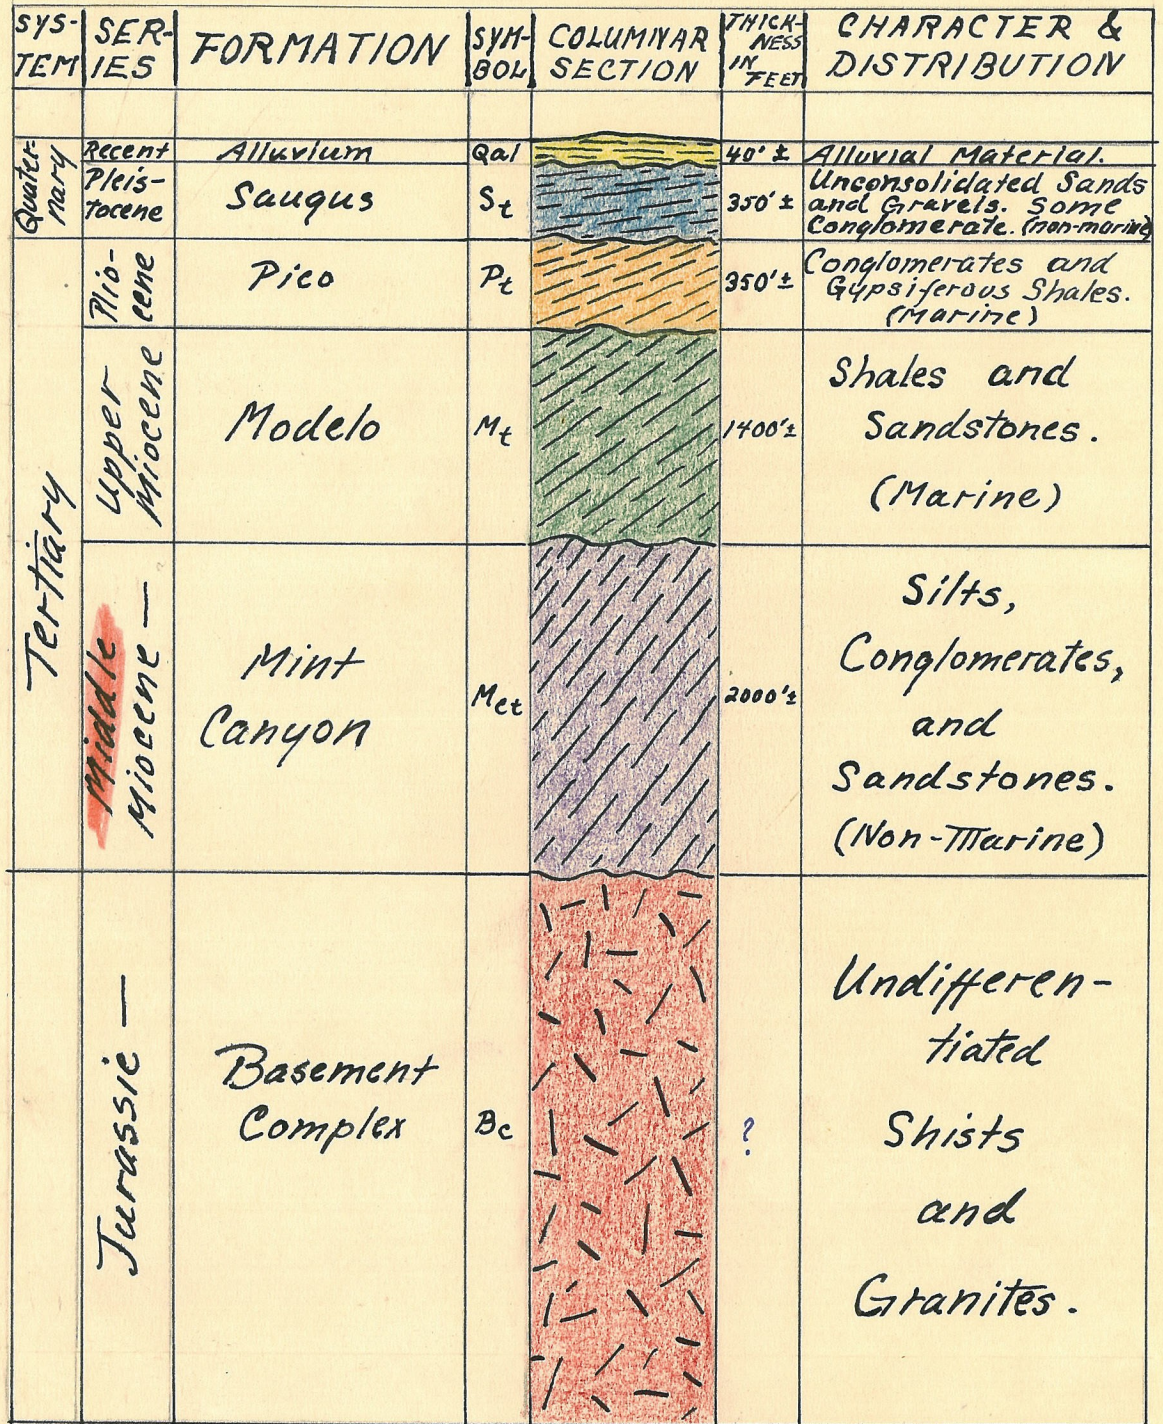 SYS-
TEM
SER-
IES
FORMATION
SYM-
BOL
COLUMNAR
SECTION
THICK-
NESS
IN
FEET
CHARACTER &
DISTRIBUTION
Quater-
nary
Recent
Alluvium
Qal
40' ±
Alluvial Material.
Pleis-
tocene
Saugus
St
350' ±
Unconsolidated Sands
and Gravels. Some
Conglomerate. (non-marine)
Tertiary
Plio-
cene
Pico
Pt
350' ±
Conglomerates and
Gypsiferous Shales.
(Marine)
Upper
Miocene
Modelo
Mt
1400' ±
Shales and
Sandstones.
(Marine)
Middle
Miocene —
Mint
Canyon
Mct
2000' ±
Silts,
Conglomerates,
and
Sandstones.
(Non-Marine)
Jurassic —
Basement
Complex
Bc
?
Undifferen-
tiated
Shists
and
Granites.